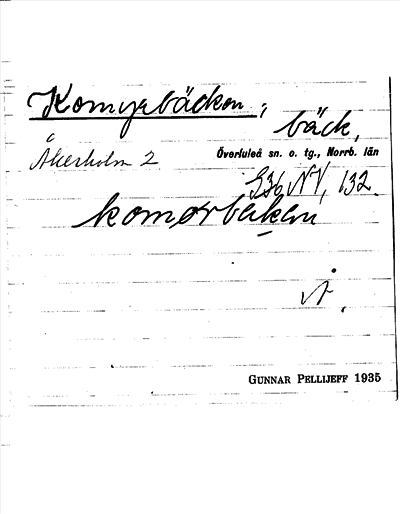 Komyrbäcken, bäck,
Åkerholm 2
Överluleå sn. o. tg., Norrb. län
S36, NV, 132.
komørbäken
GUNNAR PELLIJEFF 1935